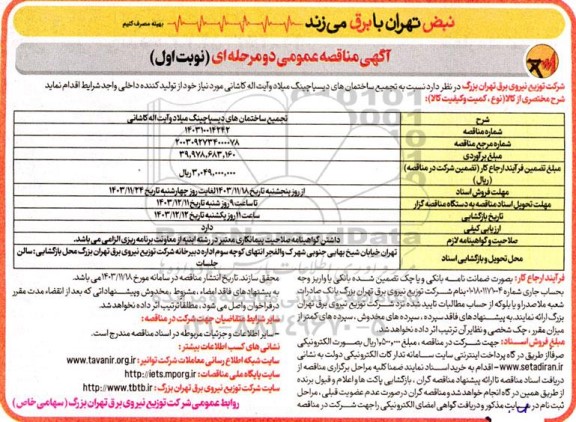 نبض تهران با برق می‌زند
بهینه مصرف کنیم
آگهی مناقصه عمومی دو مرحله ای (نوبت اول)
شرکت توزیع نیروی برق تهران بزرگ در نظر دارد نسبت به تجمیع ساختمان های دیسپاچینگ میلاد و آیت اله کاشانی مورد نیاز خود از تولید کننده داخلی واجد شرایط اقدام نماید
شرح مختصری از کالا (نوع، کمیت و کیفیت کالا):
شرح
تجمیع ساختمان های دیسپاچینگ میلاد و آیت اله کاشانی
شماره مناقصه
۱۴۰۳۱۰۰۱۴۲۴۲
شماره مرجع مناقصه
۲۰۰۳۰۹۲۷۳۴۰۰۰۰۷۸
مبلغ برآوردی
۳۹,۹۷۸,۶۸۳,۱۶۰
مبلغ تضمین فرآیند ارجاع کار (تضمین شرکت در مناقصه) (ریال)
۳,۰۴۹,۰۰۰,۰۰۰ ریال
مهلت فروش اسناد
از روز پنجشنبه تاریخ ۱۴۰۳/۱۱/۱۸ لغایت روز چهارشنبه تاریخ ۱۴۰۳/۱۱/۲۴
مهلت تحویل اسناد مناقصه به دستگاه مناقصه گزار
تا ساعت ۹ روز شنبه تاریخ ۱۴۰۳/۱۲/۱۱
تاریخ بازگشایی
ساعت ۱۱ روز یکشنبه تاریخ ۱۴۰۳/۱۲/۱۲
ارزیابی کیفی
دارد
صلاحیت و گواهینامه لازم
داشتن گواهینامه صلاحیت پیمانکاری معتبر در رشته ابنیه از معاونت برنامه ریزی الزامی می باشد.
محل تحویل و بازگشایی اسناد
تهران خیابان شیخ بهایی جنوبی شهرک والفجر انتهای کوچه سوم اداره دبیرخانه شرکت توزیع نیروی برق تهران بزرگ محل بازگشایی: سالن جلسات
فرآیند ارجاع کار: بصورت ضمانت نامه بانکی و یا چک تضمین شده بانکی یا واریز وجه
بحساب جاری شماره ۰۱۰۱۱۱۷۷۰۰۴ بنام شرکت توزیع نیروی برق تهران بزرگ بانک صادرات
شعبه ملاصدرا و یا بلوکه از حساب مطالبات تایید شده نزد شرکت توزیع نیروی برق تهران
بزرگ ارائه نمایند. به پیشنهاد های فاقد سپرده، سپرده های مخدوش، سپرده های کمتر از
میزان مقرر، چک شخصی و نظایر آن ترتیب اثر داده نخواهد شد.
مبلغ فروش اسناد: جهت شرکت در مناقصه، مبلغ ریال بصورت الکترونیکی
صرفا از طریق درگاه پرداخت اینترنتی سایت سامانه تدارکات الکترونیکی دولت به نشانی
www.setadiran.ir - اقدام به خرید اسناد نمایند ضمنا کلیه مراحل برگزاری مناقصه از
دریافت اسناد مناقصه تا ارائه پیشنهاد مناقصه گران، بازگشایی پاکت ها و اعلام و قبول برنده
از طریق همین درگاه انجام خواهد شد و مناقصه گران در صورت عدم عضویت قبلی، مراحل
ثبت نام در سایت مذکور و دریافت گواهی امضای الکترونیکی را جهت شرکت در مناقصه
محقق سازند. تاریخ انتشار مناقصه در سامانه مورخ ۱۴۰۳/۱۱/۱۸ می باشد.
به پیشنهاد های فاقد امضاء، مشروط، مخدوش و پیشنهاداتی که بعد از انقضاء مدت مقرر
در فراخوان واصل می شود، مطلقا ترتیب اثر داده نخواهد شد.
سایر شرایط متقاضیان جهت شرکت در مناقصه:
- سایر اطلاعات و جزئیات مربوطه در اسناد مناقصه مندرج است.
نشانی های کسب اطلاعات بیشتر:
شبکه اطلاع رسانی معاملات شرکت توانیر: www.tavanir.org.ir
سایت پایگاه ملی مناقصات: http://iets.mporg.ir
سایت شرکت توزیع نیروی برق تهران بزرگ: http://www.tbtb.ir
روابط عمومی شرکت توزیع نیروی برق تهران بزرگ (سهامی خاص)